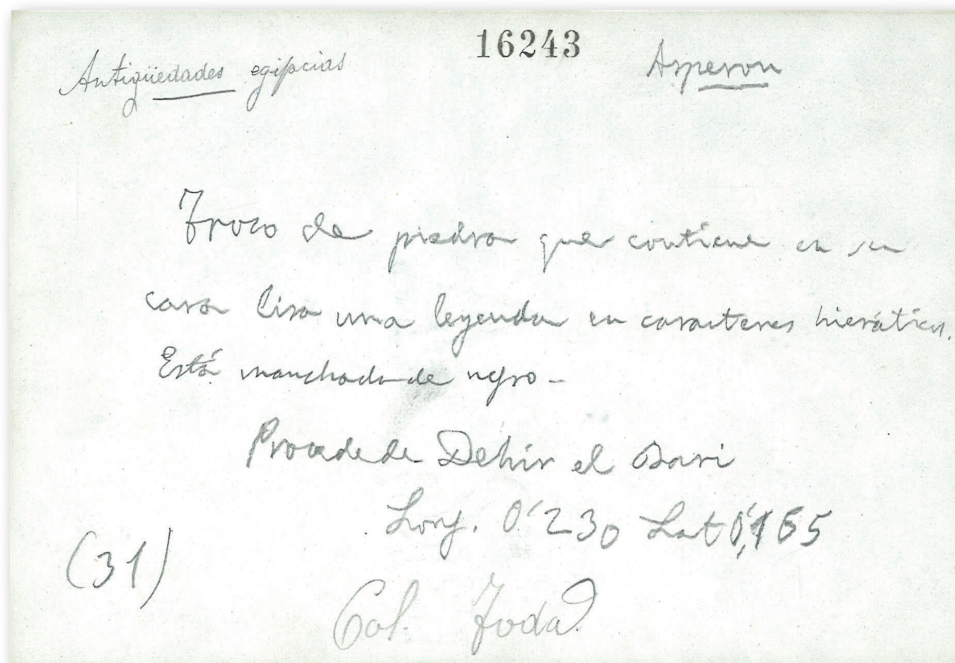 Antigüedades egipcias 16243 Asperon
Trozo de piedra que contiene en su
cara lisa una leyenda en caracteres hieráticos.
Está manchada de negro -
Procede de Dehir el Bari
Long. 0'230 Lat 0'165
(31)
Col. Toda